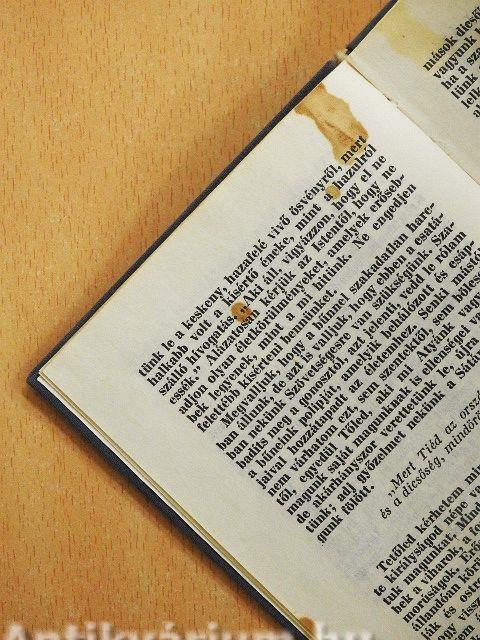 mások dicső
vagyunk
ha a sze
tünk
lelk
tünk le a keskeny, hazafelé vivő ösvényről, mert
halkabb volt a kísértő éneke, mint a hazulról
szálló hívogatás, ki áll, vigyázzon, hogy el ne
essék." Alázatosan kérjük az Istentől, hogy ne
adjon olyan életkörülményeket, amelyek erőseb-
bek legyenek, mint a mi hitünk. Ne engedjen
felettébb kísérteni bennünket.
Megvalljuk, hogy a bűnnel szakadatlan harc-
ban állunk, de azt is valljuk, hogy ebben a csatá-
ban nekünk Szövetségesre van szükségünk. Sza-
badíts meg a gonosztól, ezt jelenti: vedd le rólam
a bűneim polipját, amelyik behálózott és csáp-
jaival hozzátapadt az életemhez. Senki mástól
nem várhatom ezt, sem szentektől, sem bölcsek-
től, egyedül Tőled, aki az Atyánk vagy.
magunk saját magunknak is ellenségei va
de akárhányszor verettetünk le, újra
tünk; adj győzelmet nekünk a Sátán
gunk fölött.
„Mert Tiéd az orszá
és a dicsőség, mindörö
Tetőled kérhetem min
te királyságot népe va
tuk magunkat. Mind
bek a viharok, a
morúságok. Erő
állandóan kör
és ostro
Antikvárium.hu